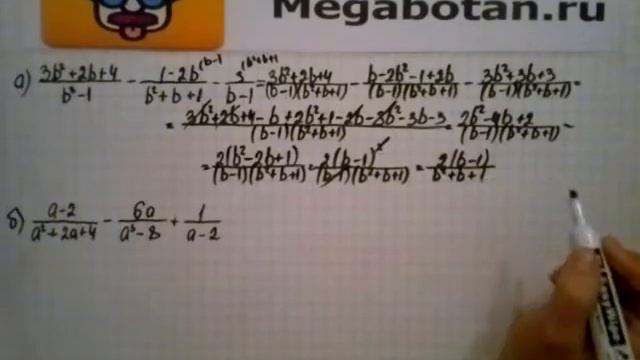 Megabotan.ru
а) (3b²+2b+4)/(b³-1) - (1-2b)/(b²+b+1) ^(b-1) - 3/(b-1) ^(b²+b+1) = (3b²+2b+4)/((b-1)(b²+b+1)) - (b-2b²-1+2b)/((b-1)(b²+b+1)) - (3b²+3b+3)/((b-1)(b²+b+1)) =
= (3b²+2b+4-b+2b²+1-2b-3b²-3b-3)/((b-1)(b²+b+1)) = (2b²-4b+2)/((b-1)(b²+b+1)) =
= 2(b²-2b+1)/((b-1)(b²+b+1)) = 2(b-1)²/((b-1)(b²+b+1)) = 2(b-1)/(b²+b+1)
б) (a-2)/(a²+2a+4) - 6a/(a³-8) + 1/(a-2)